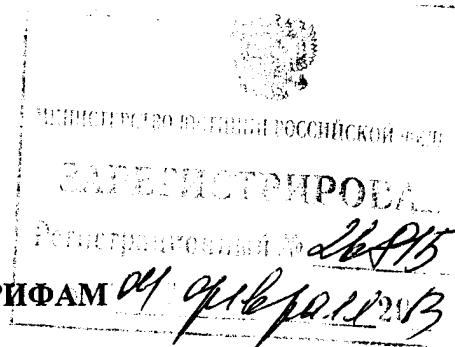 МИНИСТЕРСТВО ЮСТИЦИИ РОССИЙСКОЙ ФЕДЕ
ЗАРЕГИСТРИРОВА
Регистрационный № 26815
РИФАМ 04 февраля 2013